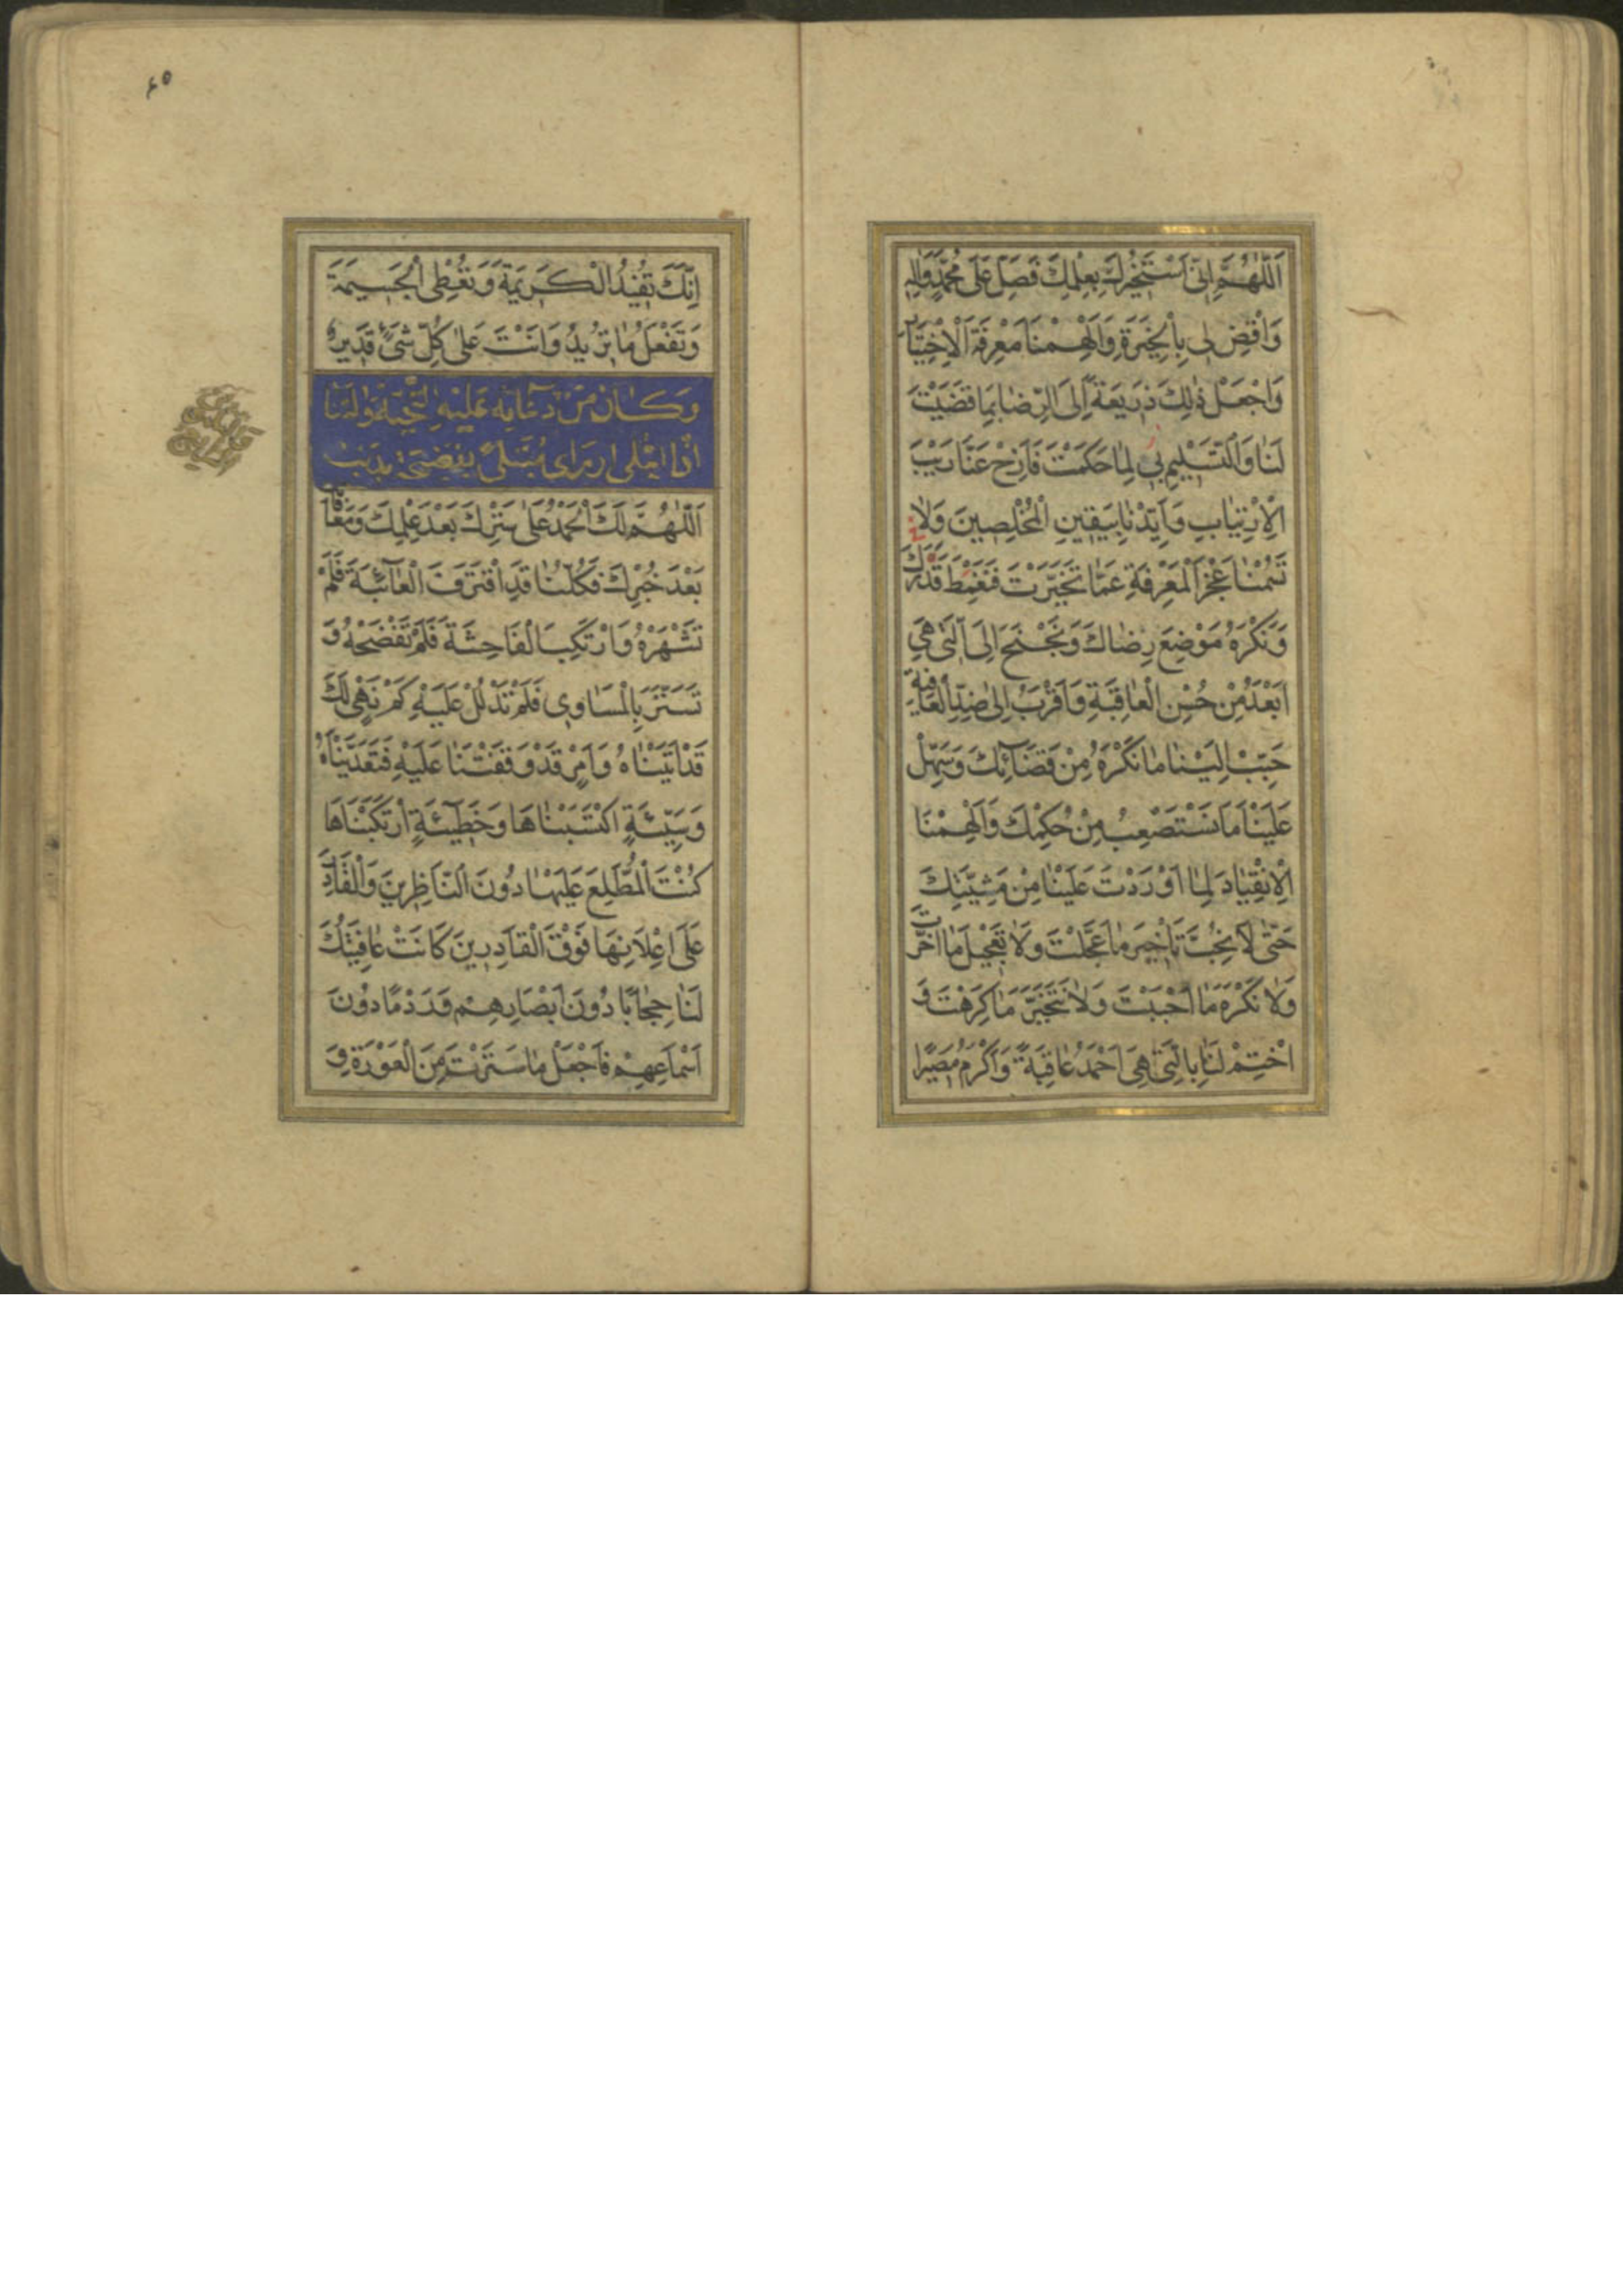 اَللّٰهُمَّ اِنّى اَسْتَخيرُكَ بِعِلْمِكَ فَصَلِّ عَلى مُحَمَّدٍ وَالِهِ
وَاقْضِ لى بِالْخِيَرَةِ وَاَلْهِمْنا مَعْرِفَةَ الْاِخْتِيارِ
وَاجْعَلْ ذٰلِكَ ذَريعَةً اِلَى الرِّضا بِما قَضَيْتَ
لَنا وَالتَّسْليمِ لِما حَكَمْتَ فَاَزِحْ عَنّا رَيْبَ
الْاِرْتِيابِ وَاَيِّدْنا بِيَقينِ الْمُخْلِصينَ وَلا
تَسُمْنا عَجْزَ الْمَعْرِفَةِ عَمّا تَخَيَّرْتَ فَنَغْمِطَ قَدْرَكَ
وَنَكْرَهَ مَوْضِعَ رِضاكَ وَنَجْنَحَ اِلَى الَّتى هِىَ
اَبْعَدُ مِنْ حُسْنِ الْعاقِبَةِ وَاَقْرَبُ اِلى ضِدِّ الْعافِيَةِ
حَبِّبْ اِلَيْنا ما نَكْرَهُ مِنْ قَضآئِكَ وَسَهِّلْ
عَلَيْنا ما نَسْتَصْعِبُ مِنْ حُكْمِكَ وَاَلْهِمْنَا
الْاِنْقِيادَ لِما اَوْرَدْتَ عَلَيْنا مِنْ مَشِيَّتِكَ
حَتّى لا نُحِبَّ تَأْخيرَ ما عَجَّلْتَ وَلا تَعْجيلَ ما اَخَّرْتَ
وَلا نَكْرَهَ ما اَحْبَبْتَ وَلا نَتَخَيَّرَ ما كَرِهْتَ وَ
اخْتِمْ لَنا بِالَّتى هِىَ اَحْمَدُ عاقِبَةً وَاَكْرَمُ مَصيرًا
٤٥
اِنَّكَ تُفيدُ الْكَريمَةَ وَتُعْطِى الْجَسيمَةَ
وَتَفْعَلُ ما تُريدُ وَاَنْتَ عَلى كُلِّ شَىْءٍ قَديرٌ
وَكانَ مِنْ دُعآئِهِ عَلَيْهِ التَّحِيَّةُ وَالثَّنا
اِذَا ابْتُلِىَ اَوْ رَاى مُبْتَلىً بِفَضيحَةٍ بِذَنْبٍ
اَللّٰهُمَّ لَكَ الْحَمْدُ عَلى سَتْرِكَ بَعْدَ عِلْمِكَ وَمُعافاتِكَ
بَعْدَ خُبْرِكَ فَكُلُّنا قَدِ اقْتَرَفَ الْعآئِبَةَ فَلَمْ
تَشْهَرْهُ وَارْتَكَبَ الْفاحِشَةَ فَلَمْ تَفْضَحْهُ وَ
تَسَتَّرَ بِالْمَساوِى فَلَمْ تَدْلُلْ عَلَيْهِ كَمْ نَهْىٍ لَكَ
قَدْ اَتَيْناهُ وَاَمْرٍ قَدْ وَقَفْتَنا عَلَيْهِ فَتَعَدَّيْناهُ
وَسَيِّئَةٍ اكْتَسَبْناها وَخَطيئَةٍ ارْتَكَبْناها
كُنْتَ الْمُطَّلِعَ عَلَيْها دُونَ النّاظِرينَ وَالْقادِرَ
عَلى اِعْلانِها فَوْقَ الْقادِرينَ كانَتْ عافِيَتُكَ
لَنا حِجابًا دُونَ اَبْصارِهِمْ وَرَدْمًا دُونَ
اَسْماعِهِمْ فَاجْعَلْ ما سَتَرْتَ مِنَ الْعَوْرَةِ وَ